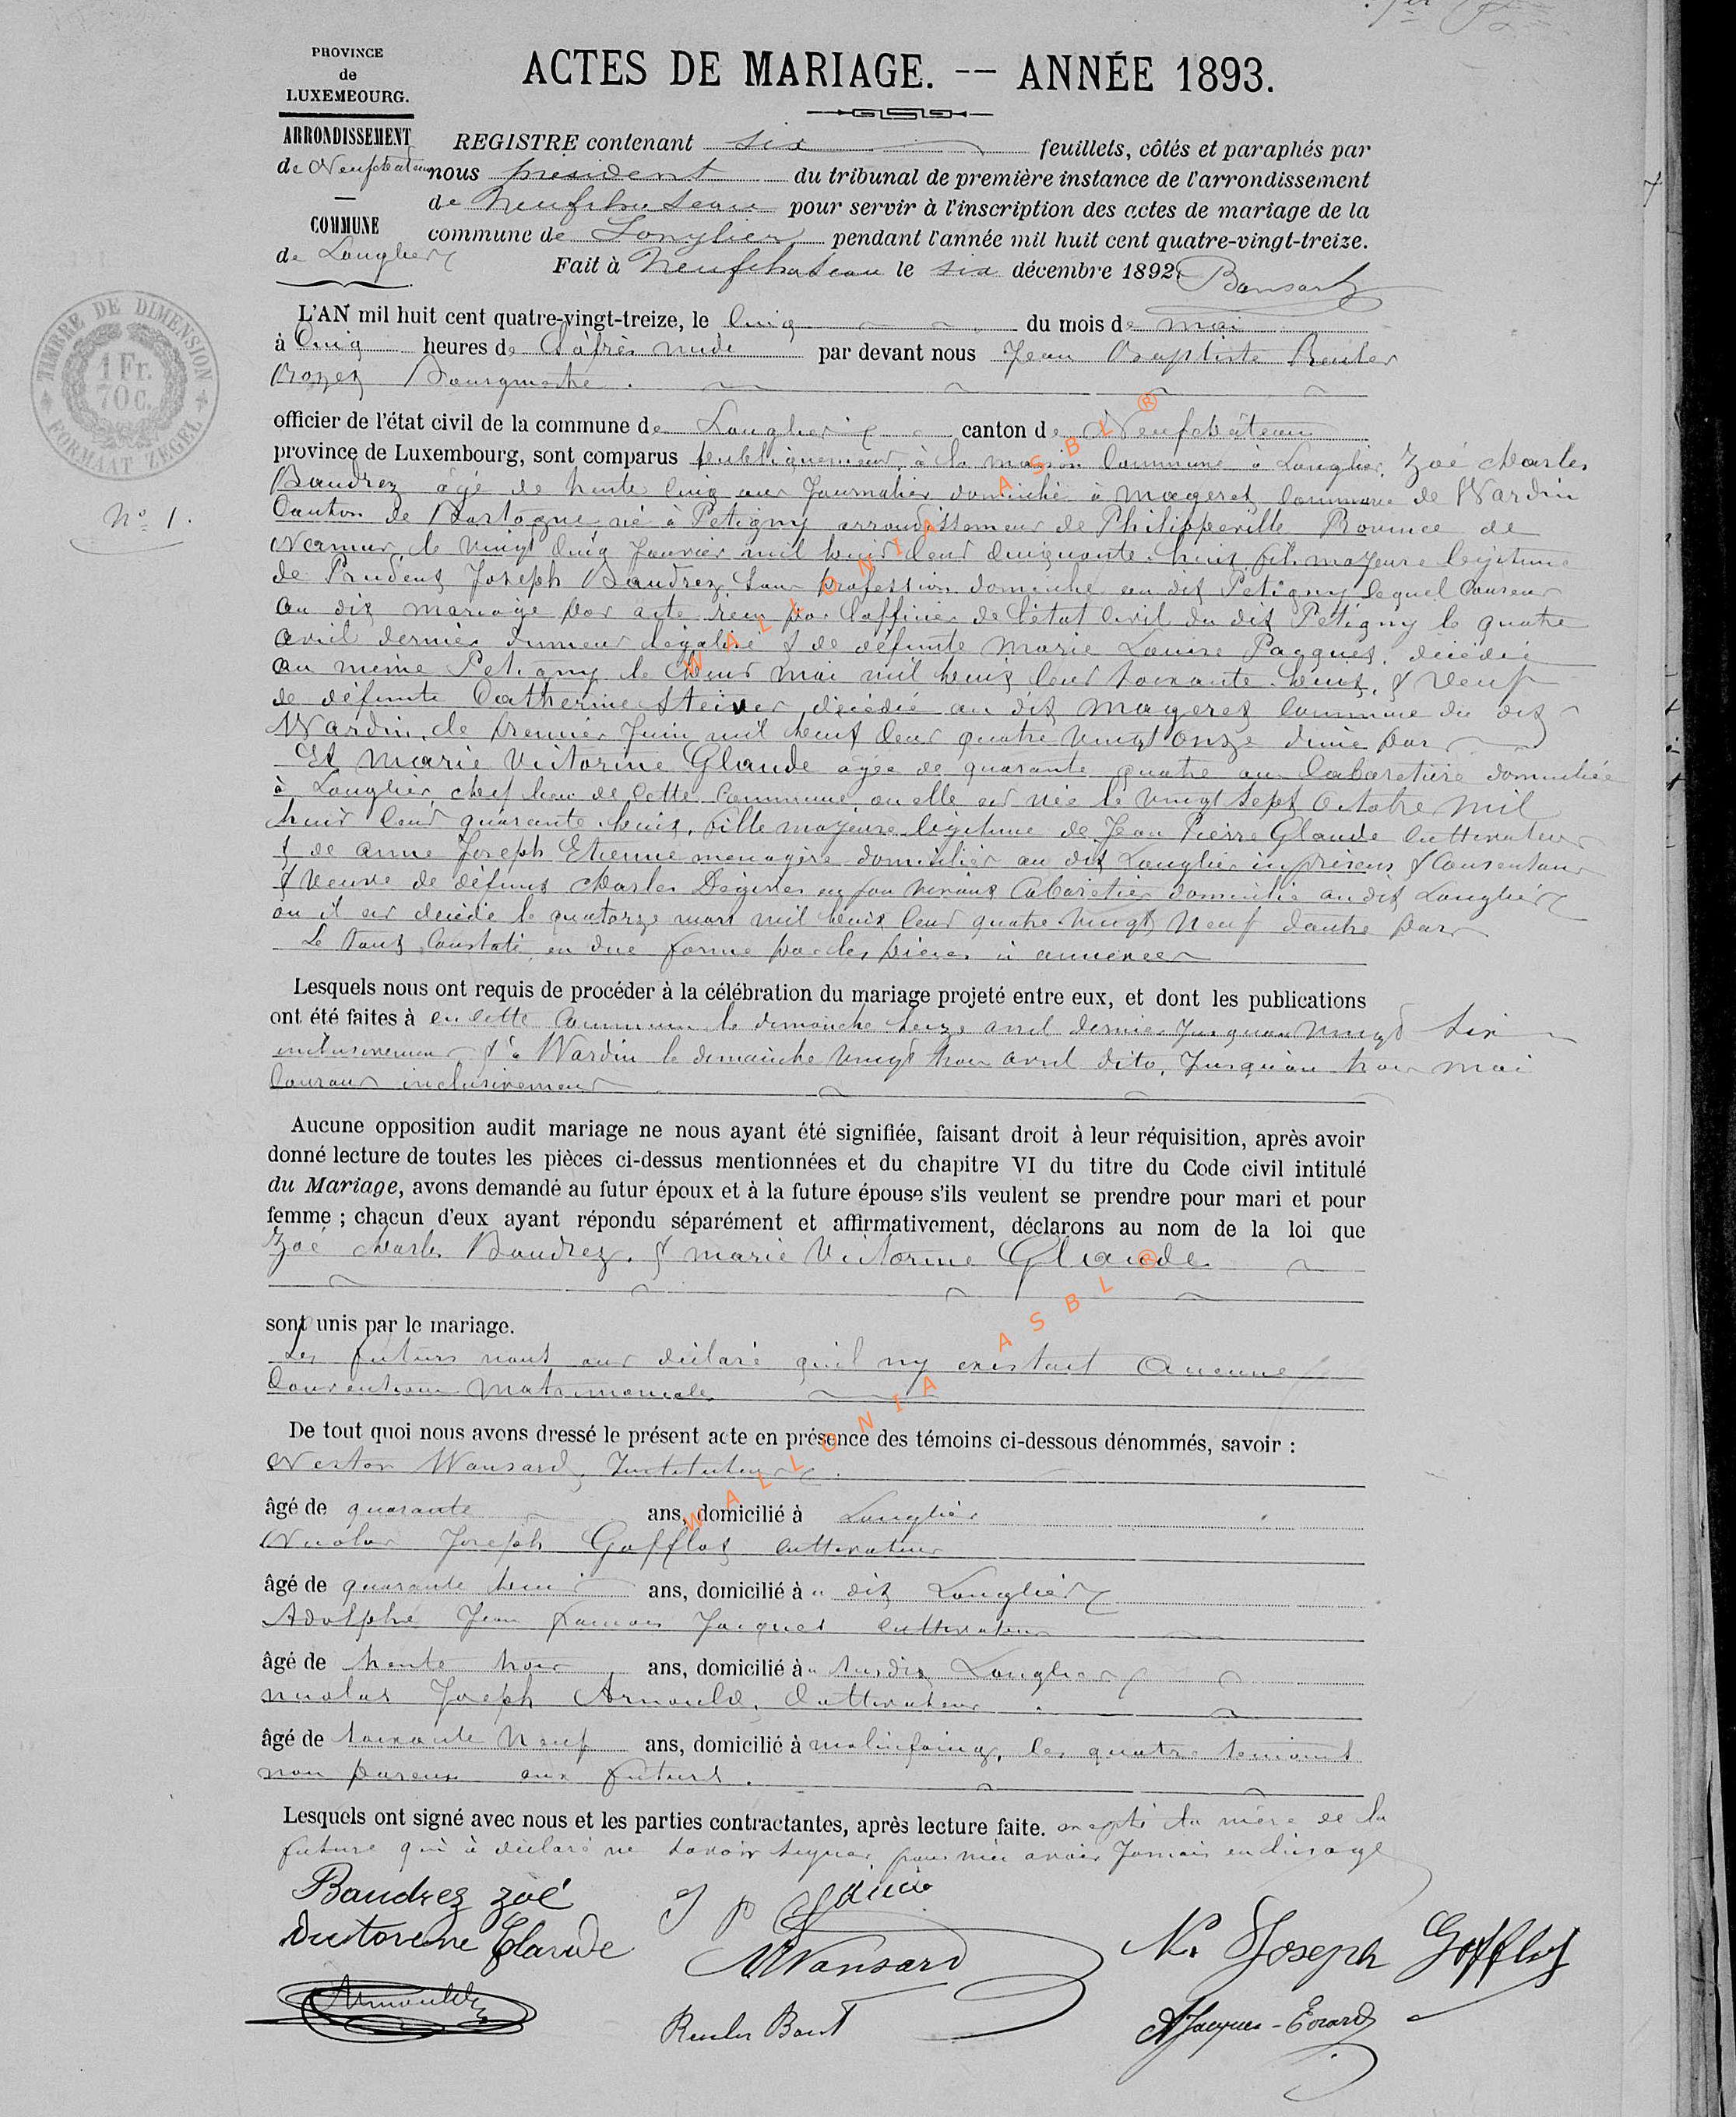 PROVINCE
de
LUXEMBOURG.
ARRONDISSEMENT
de Neufchateau
COMMUNE
de Longlier
ACTES DE MARIAGE. -- ANNÉE 1893.
REGISTRE contenant six feuillets, côtés et paraphés par
nous président du tribunal de première instance de l'arrondissement
de Neufchateau pour servir à l'inscription des actes de mariage de la
commune de Longlier pendant l'année mil huit cent quatre-vingt-treize.
Fait à Neufchateau le six décembre 1892.
TIMBRE DE DIMENSION
1 Fr.
70 C.
FORMAAT ZEGEL
No 1.
L'AN mil huit cent quatre-vingt-treize, le Cinq du mois de mai
à Cinq heures de l'après midi par devant nous Jean Baptiste Reuler
Bourgmestre.
officier de l'état civil de la commune de Longlier canton de Neufchâteau
province de Luxembourg, sont comparus publiquement, à la maison Commune à Longlier, Zoé Charles
Baudrez âgé de trente cinq ans Journalier domicilié à Mageret Commune de Wardin
Canton de Bastogne, né à Petigny arrondissement de Philippeville Province de
Namur, le vingt cinq Janvier mil huit cent cinquante huit, fils majeur légitime
de Prudent Joseph Baudrez sans profession domicilié au dit Petigny lequel consent
au dit mariage par acte reçu par l'officier de l'état Civil du dit Petigny le quatre
avril dernier dument légalisé & de défunte Marie Louise Pacques, décédée
au même Petigny le deux mai mil huit cent soixante huit, & Veuf
de défunte Catherine Steiver, décédée au dit Mageret Commune du dit
Wardin, le premier Juin mil huit cent quatre vingt onze d'une part
Et Marie Victorine Glaude agée de quarante quatre ans Cabaretière domiciliée
à Longlier, chef lieu de Cette Commune, ou elle est née le vingt sept Octobre mil
huit cent quarante huit, fille majeure légitime de Jean Pierre Glaude Cultivateur
& de Anne Joseph Etienne menagère domiciliés au dit Longlier ici présens & Consentans
& veuve de défunt Charles en son vivant Cabaretier domicilié au dit Longlier
ou il est décédé le quatorze mars mil huit cent quatre vingt Neuf d'autre part
Le tout Constaté en due forme par les pièces ci annexées
Lesquels nous ont requis de procéder à la célébration du mariage projeté entre eux, et dont les publications
ont été faites à en cette Commune le dimanche seize avril dernier Jusqu'au vingt six
inclusivement & à Wardin le dimanche vingt trois avril dito, Jusqu'au trois mai
Courant inclusivement
Aucune opposition audit mariage ne nous ayant été signifiée, faisant droit à leur réquisition, après avoir
donné lecture de toutes les pièces ci-dessus mentionnées et du chapitre VI du titre du Code civil intitulé
du Mariage, avons demandé au futur époux et à la future épouse s'ils veulent se prendre pour mari et pour
femme ; chacun d'eux ayant répondu séparément et affirmativement, déclarons au nom de la loi que
Zoé Charles Baudrez. & Marie Victorine Glaude
sont unis par le mariage.
Les futurs nous ont déclaré qu'il n'y existait Aucune
Convention Matrimoniale
De tout quoi nous avons dressé le présent acte en présence des témoins ci-dessous dénommés, savoir :
Nestor Wansard, Instituteur
âgé de quarante ans, domicilié à Longlier
Nicolas Joseph Gofflot Cultivateur
âgé de quarante huit ans, domicilié à u dit Longlier
Adolphe Jean François Jacques Cultivateur
âgé de trente trois ans, domicilié à u susdit Longlier
Nicolas Joseph Arnould, Cultivateur
âgé de soixante Neuf ans, domicilié à Molinfaing, les quatre témoins
non parens aux futurs.
Lesquels ont signé avec nous et les parties contractantes, après lecture faite. excepté la mère de la
future qui à déclaré ne savoir signer, pour n'en avoir Jamais eu l'usage
Baudrez zoé
Victorine Glaude
J P Glaude
NWansard
N. Joseph Gofflot
Arnould
AJacques-Evrard
WALLONIA ASBL ®
WALLONIA ASBL ®